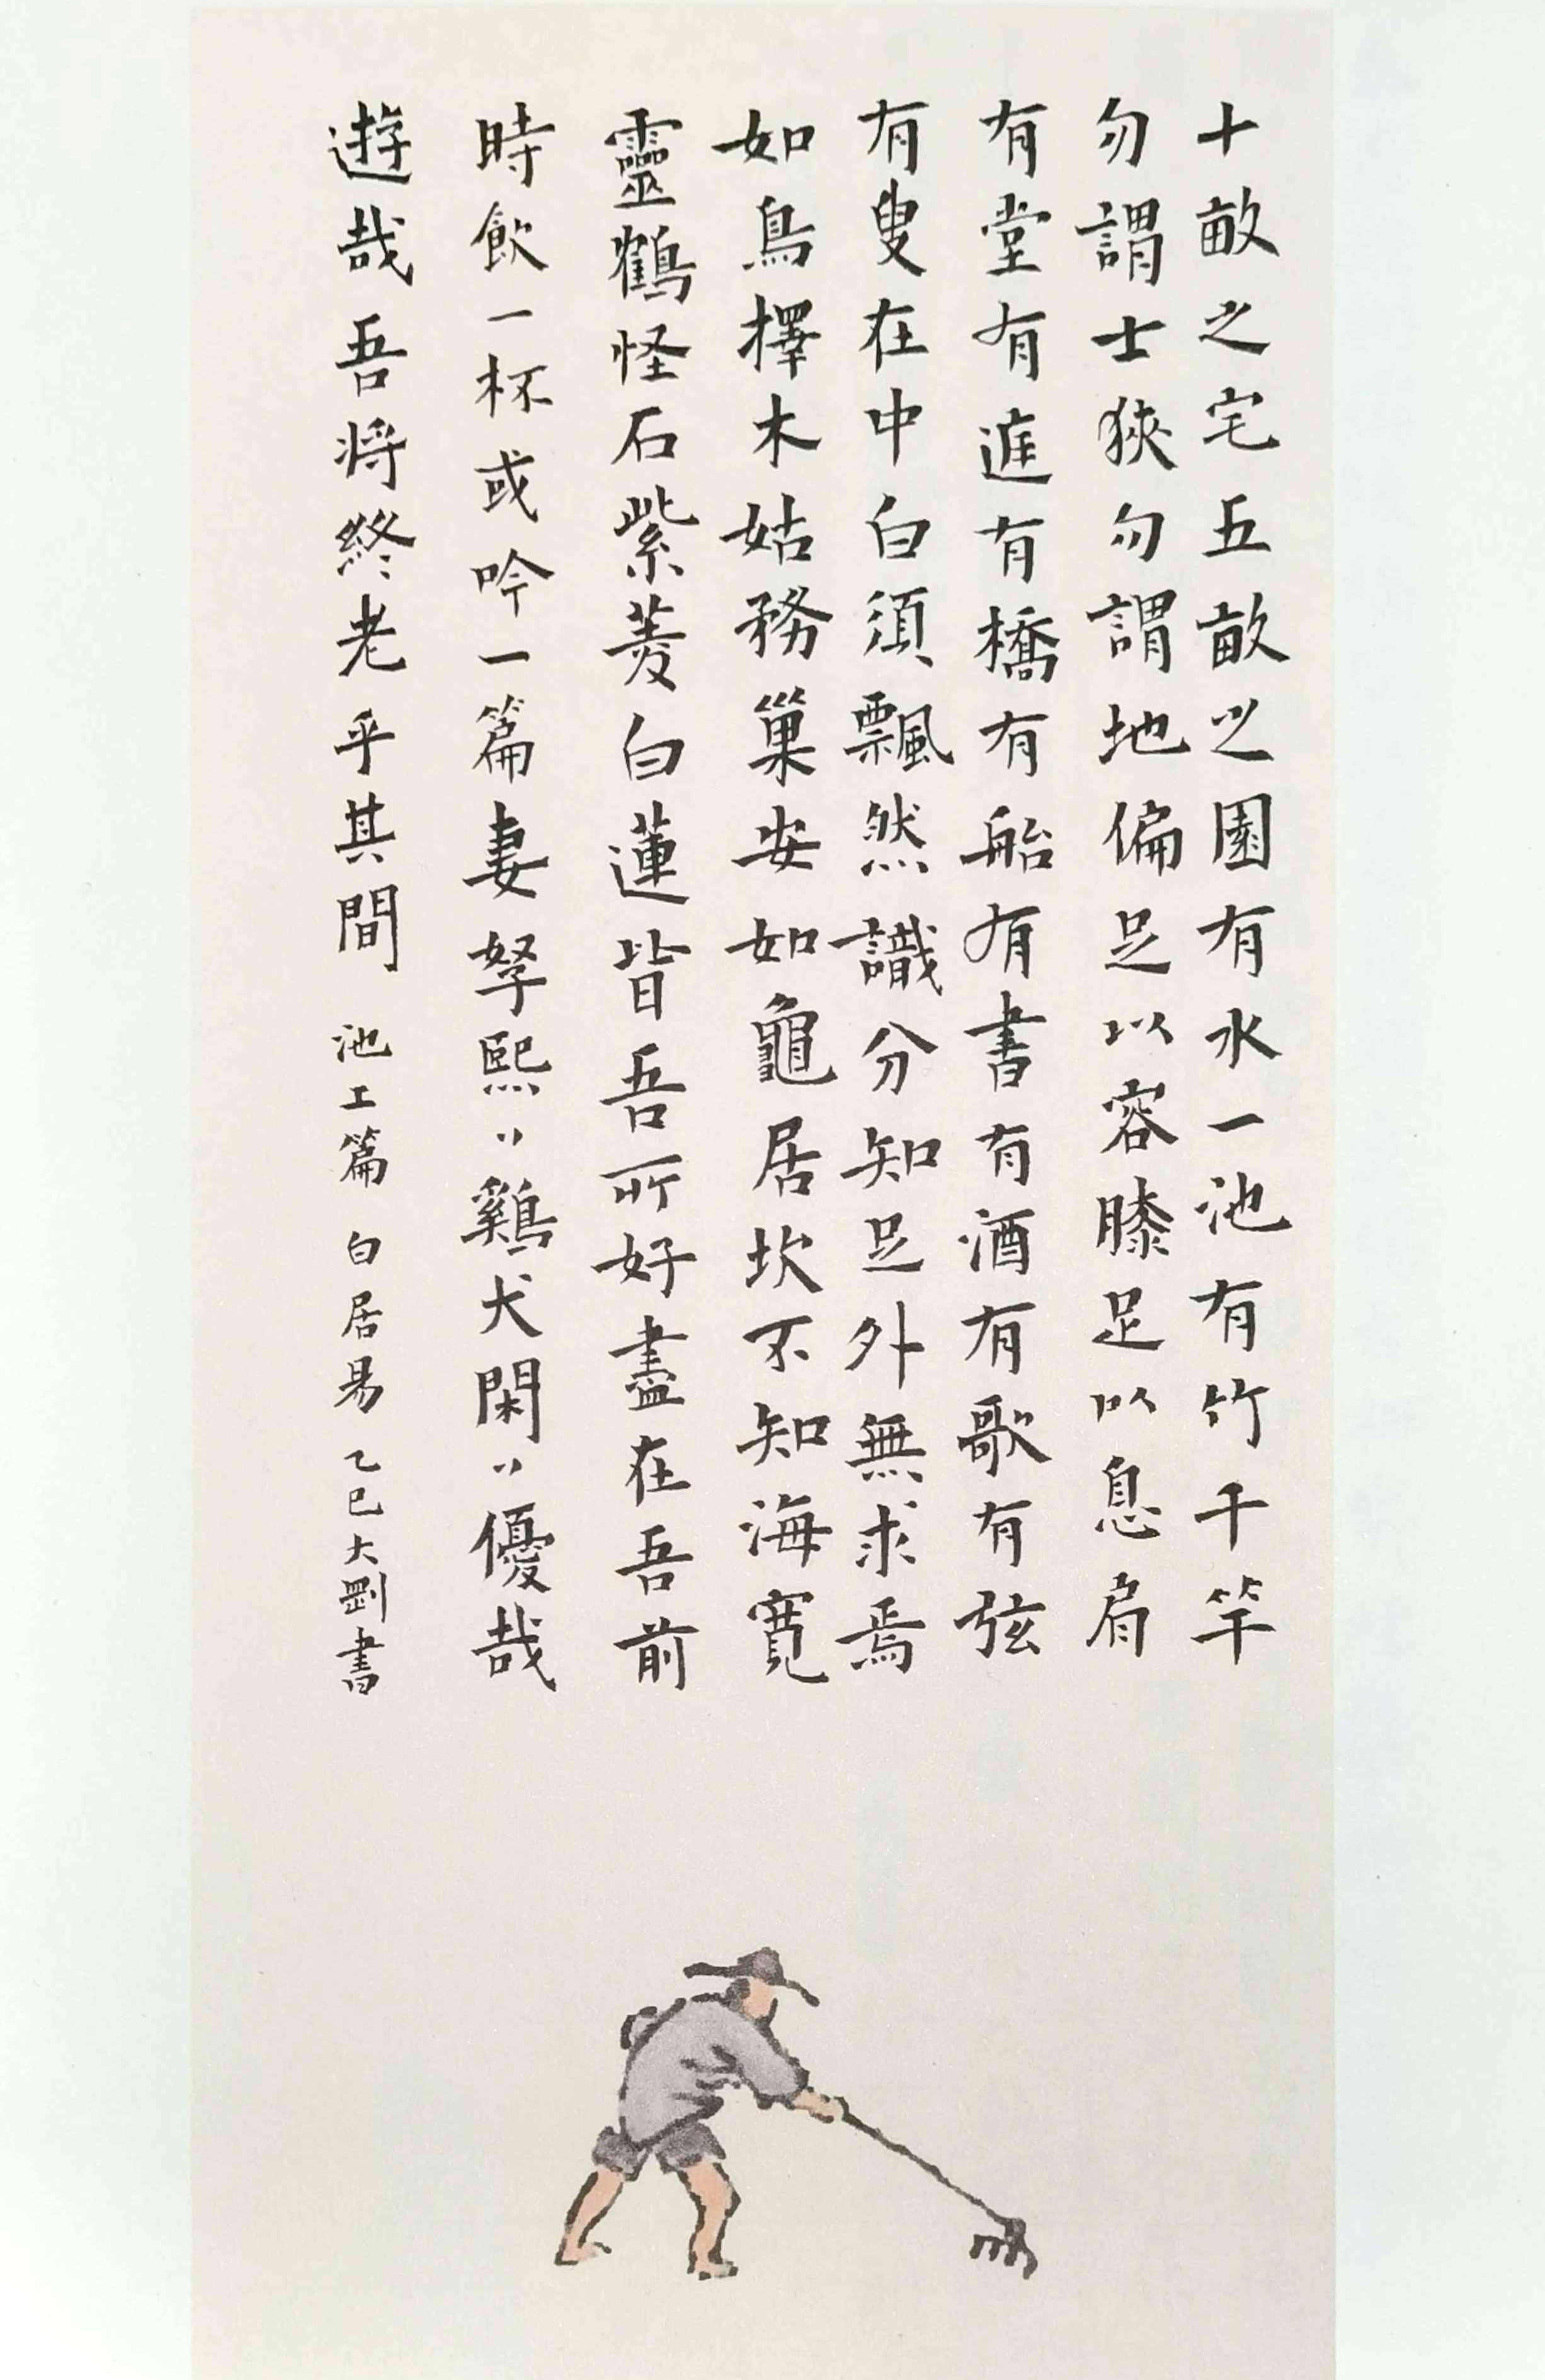 十畝之宅五畝之園有水一池有竹千竿
勿謂士狹勿謂地偏足以容膝足以息肩
有堂有庭有橋有船有書有酒有歌有弦
有叟在中白須飄然識分知足外無求焉
如鳥擇木姑務巢安如龜居坎不知海寬
靈鶴怪石紫菱白蓮皆吾所好盡在吾前
時飲一杯或吟一篇妻孥熙〻鷄犬閑〻優哉
遊哉吾将終老乎其間 池上篇 白居易 乙巳大剛書